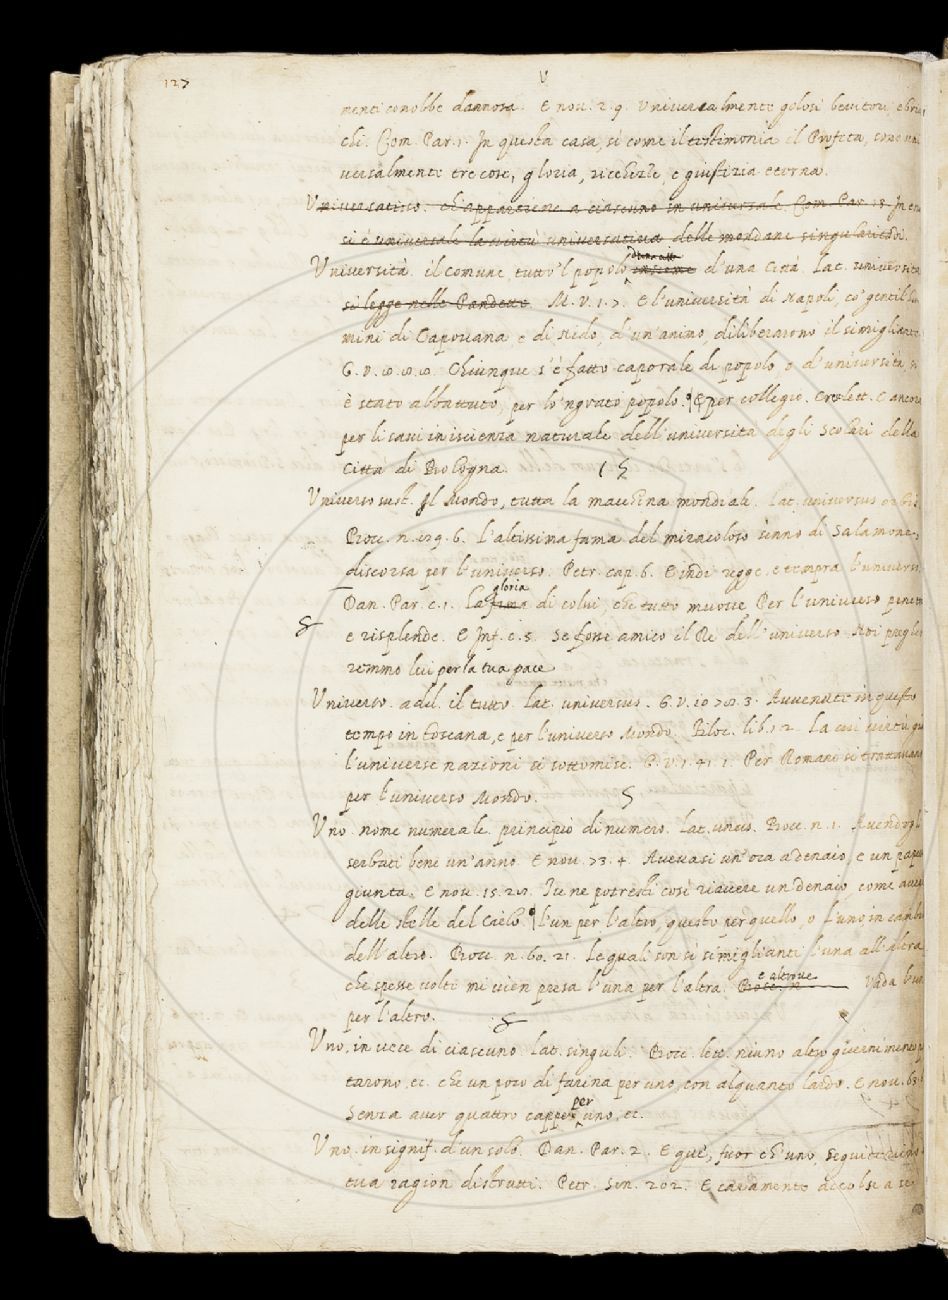 127
V
menti conobbe dannosa. E nov. 2. 9. Universalmente golosi bevitori ebria
chi. Com. Par. 1. In questa casa, sì come il testimonia il Profeta, sono uni
versalmente tre cose, gloria, ricchezze, e giustizia eterna.
Universativo. ch'appartiene a ciascuno in universale. Com. Par. 18. In
si è universale la virtù universativa delle mondane singularitadi.
Università. il comune tutto 'l popolo insieme d'una Città. Lat. universitas
si legge nelle Pandette. M. V. 1. 7. E l'università di Napoli, co' gentil huo
mini di Capovana e di Nido, d'un'animo, diliberarono il simigliante
G. V. Chiunque s'è fatto caporale di popolo, o d'università, si
è stato abbattuto, per lo 'ngrato popolo. E per collegio. Cr. lett. E ancora
per li savi in iscienza naturale dell'università degli Scolari della
Città di Bologna.
Universo sust. Il Mondo, tutta la macchina mondiale. Lat. universus orbis
Bocc. n. 6. L'altissima fama del miracoloso senno di Salamone,
discorsa per l'universo. Petr. cap. 6. E indi regge e tempra l'universo.
gloria
Dan. Par. c. 1. La fama di colui, che tutto muove Per l'universo penetra
e risplende. E Inf. c. 5. Se fosse amico il Re dell'universo Noi preghe
remmo lui per la tua pace
Universo. add. il tutto. Lat. universus. G. V. 10 3. Avvenute in questo
tempo in Toscana, e per l'universo Mondo. Filoc. lib. 1. 2. La cui virtù
l'universe nazioni si sottomise. G. V. 1. 41. 1. Per Romani si trattavano
per l'universo Mondo.
Uno. nome numerale. principio di numero. Lat. unus. Bocc. n. 1. Avendogli
serbati bene un'anno. E nov. 73. 4. Avevasi un'oca a denaio, e un papero
giunta. E nov. 15. Tu ne potresti così riavere un denaio, come avere
delle stelle del Cielo. l'un per l'altro, questo per quello, o l'uno, in cambio
dell'altro. Bocc. n. 60. 21. Le quali son sì simiglianti l'una all'altra
e altrove
che spesse volte mi vien presa l'una per l'altra. Bocc. n. Vada l'un
per l'altro.
Uno, in vece di ciascuno. Lat. singuli. Bocc. lett. niuno altro
tarono, ec. che un poco di farina per uno, con alquanto lardo. E nov. 63.
per
Senza aver quattro cappe uno, ec.
Uno. in signif. d'un solo. Dan. Par. 2. E que', fuor ch'uno, seguiterieno
tua ragion distrutti. Petr. Son. 202. E caramente accolse a se